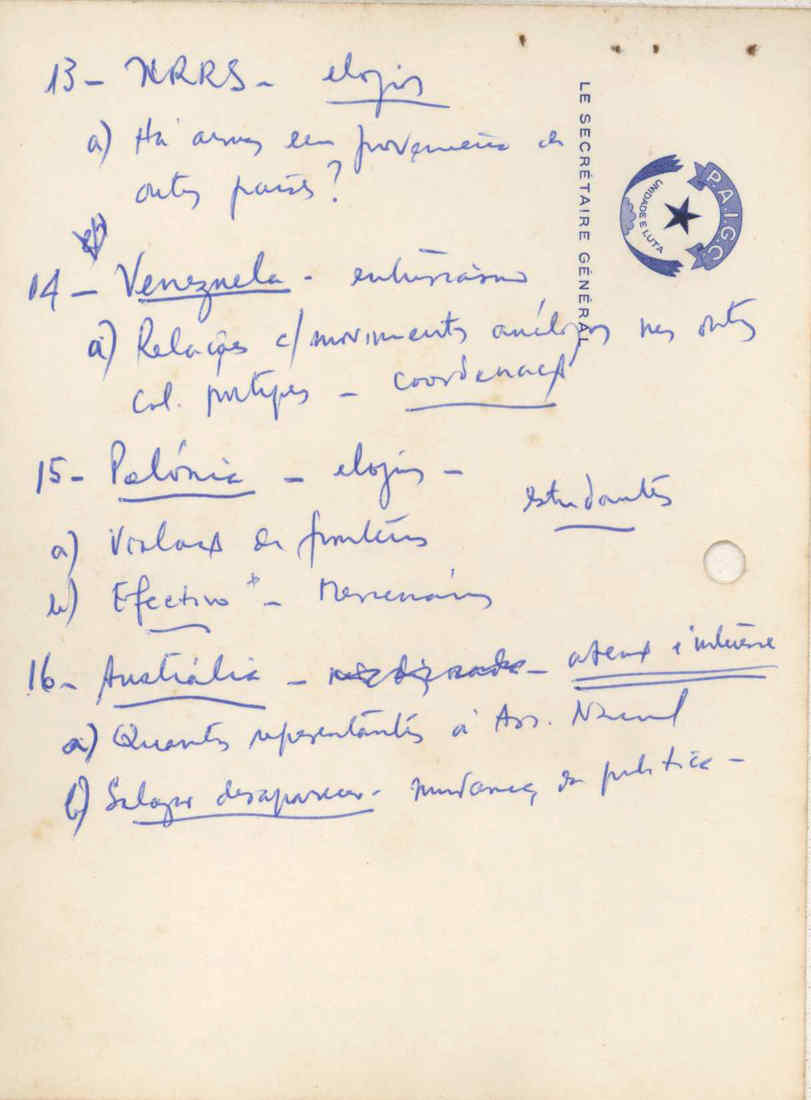 13 - URRS - elogios
a) Há armas em proveniencia de
outros países?
14 - Venezuela - entusiasmo
a) Relações c/ movimentos análogos nas outras
Col. portugues - coordenação
15 - Polónia - elogios -
estudantes
a) Violação de fronteiras
b) Efectivo - Mercenários
16 - Austrália - atenç e interesse
a) Quantos representantes à Ass. Nacional
b) Salazar desapareceu - mudança de politica -
LE SECRÉTAIRE GÉNÉRAL
P.A.I.G.C.
UNIDADE E LUTA